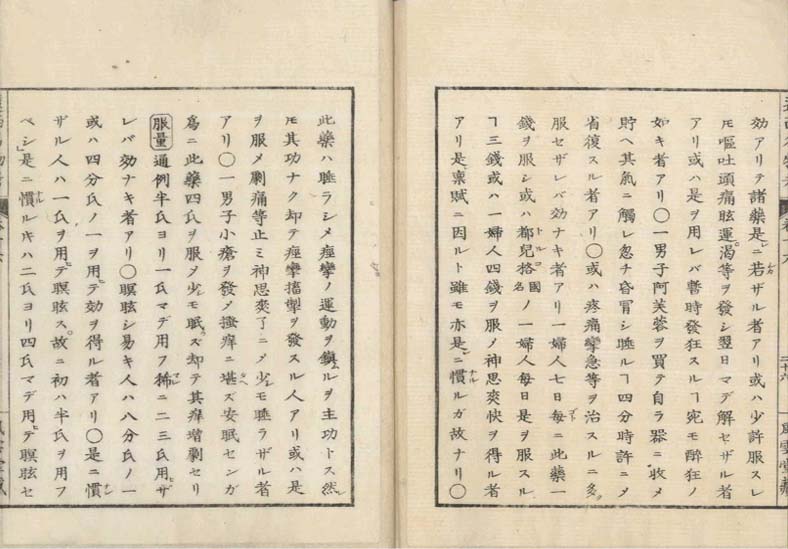 効アリテ諸藥是ニ若ザル者アリ或ハ少許服スレ
𪜈嘔吐頭痛眩運渇等ヲ發シ翌日マデ解セザル者
アリ或ハ是ヲ用レバ暫時發狂スルヿ宛モ醉狂ノ
如キ者アリ〇一男子阿芙蓉ヲ買テ自ラ器ニ收メ
貯ヘ其氣ニ觸レ忽チ昏冒シ睡ルヿ四分時許ニメ
省復スル者アリ〇或ハ疼痛攣急等ヲ治スルニ多ク
服セザレバ効ナキ者アリ一婦人七日毎ニ此藥一
錢ヲ服シ或ハ都兒格國名ノ一婦人毎日是ヲ服スル
ヿ三錢或ハ一婦人四錢ヲ服メ神思爽快ヲ得ル者
アリ是禀賦ニ因ルト雖モ亦是ニ慣ルガ故ナリ〇
此藥ハ睡ラシメ痙攣ノ運動ヲ鎭ルヲ主功トス然
𪜈其功ナク却テ痙攣搐掣ヲ發スル人アリ或ハ是
ヲ服メ劇痛等止ミ神思爽了ニメ少モ睡ラザル者
アリ〇一男子小瘡ヲ發メ搔痒ニ堪ズ安眠センガ
爲ニ此藥四氏ヲ服メ少モ眠ズ却テ其痒增劇セリ
服量 通例半氏ヨリ一氏マデ用フ稀ニ二三氏用ザ
レバ効ナキ者アリ〇瞑眩シ易キ人ハ八分氏ノ一
或ハ四分氏ノ一ヲ用テ効ヲ得ル者アリ〇是ニ慣
ザル人ハ一氏ヲ用テ瞑眩ス故ニ初ハ半氏ヲ用フ
ベシ是ニ慣ルキハ二氏ヨリ四氏マデ用テ瞑眩セ